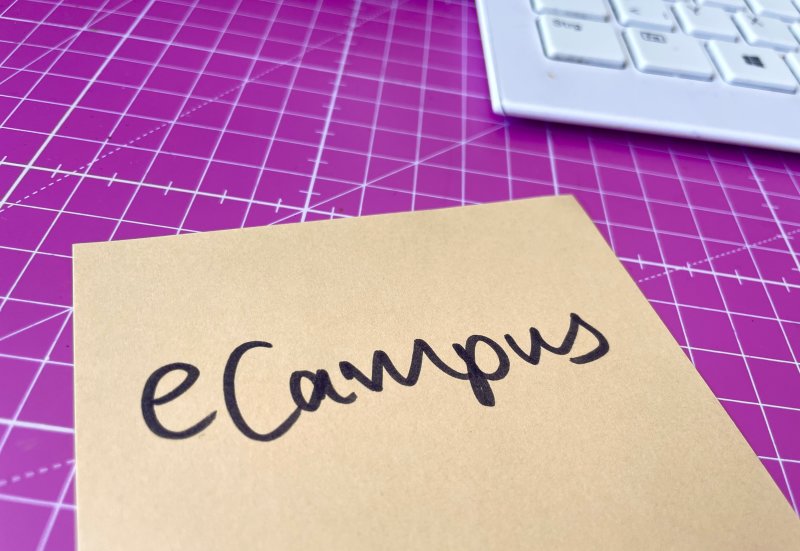 Strg
eCampus